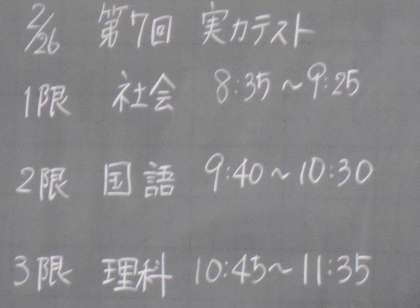 2/26 第7回 実力テスト
1限 社会 8:35～9:25
2限 国語 9:40～10:30
3限 理科 10:45～11:35